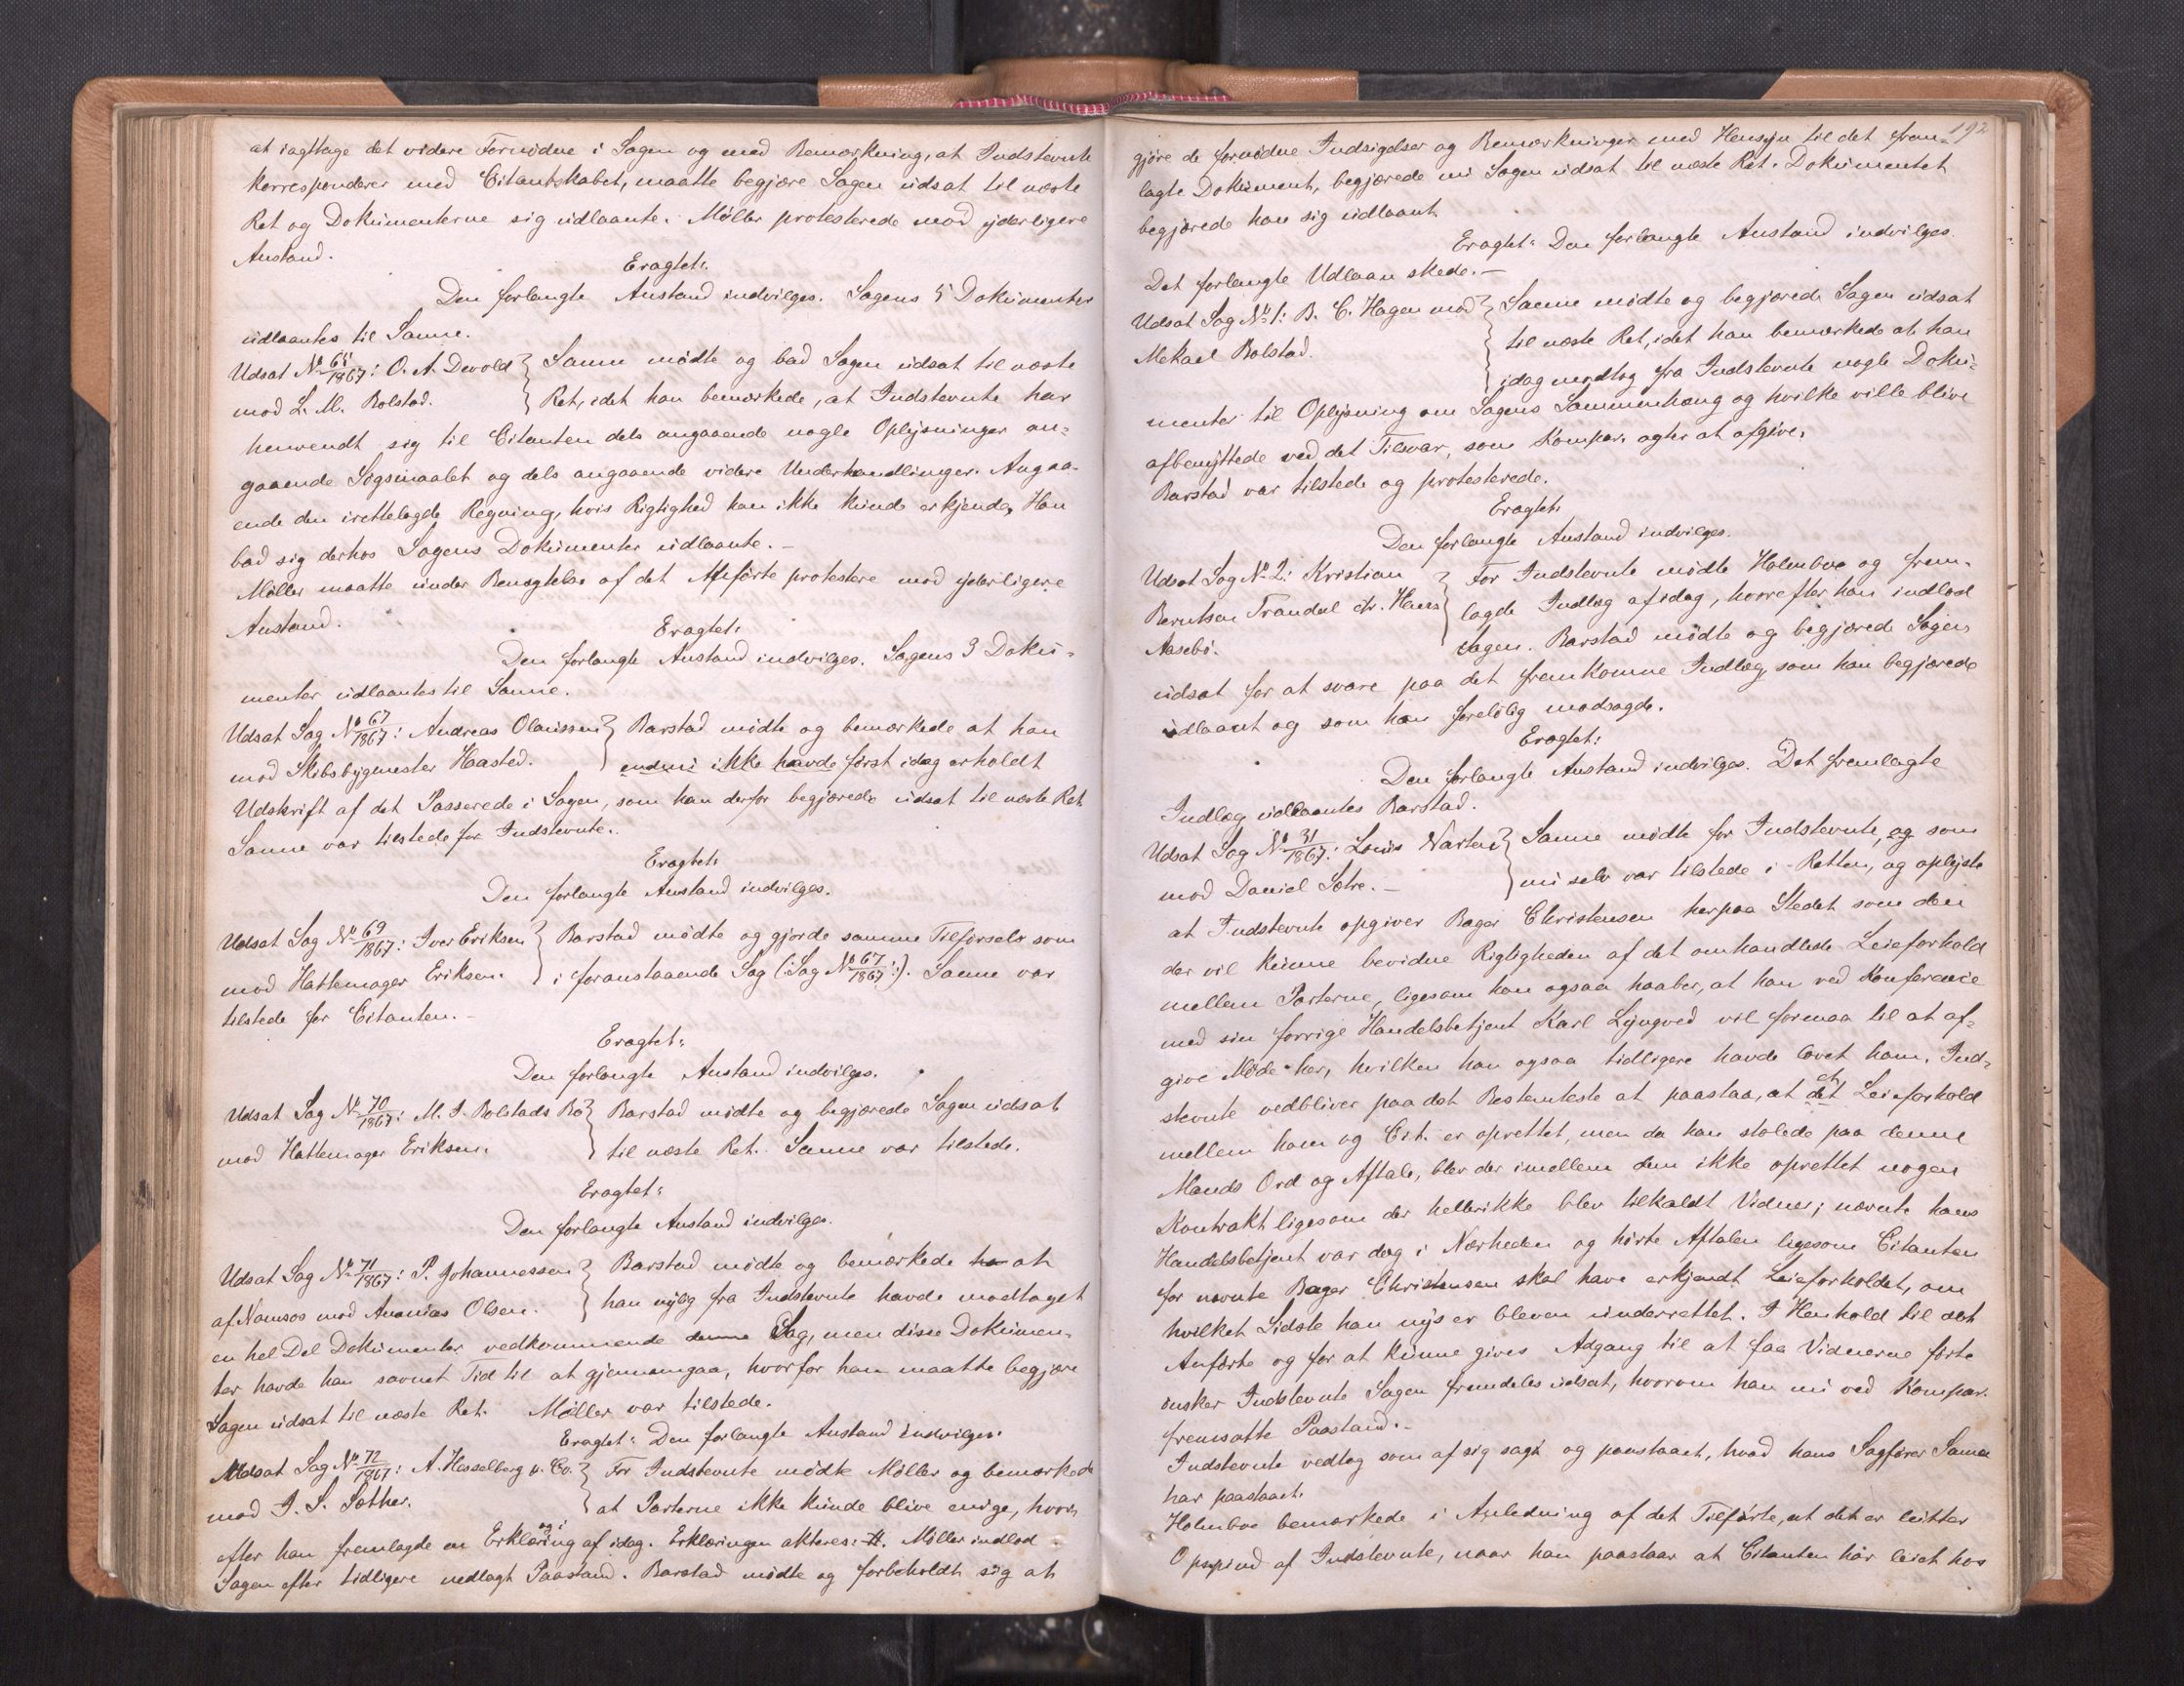 at iagttage det videre Fornødne i Sagen og med Bemærkning, at Indstevnte
korresponderer med Citantskabet, maatte begjære Sagen udsat til næste
Ret og Dokumenterne sig udlaante. Møller protesterede mod yderligere
Anstand.
Eragtet:
Den forlangte Anstand indvilges. Sagens 5 Dokumenter
udlaantes til Sanne.
Udsat No 65/1867: O. A. Devold
mod L. M. Rolstad.
Sanne mødte og bad Sagen udsat til næste
Ret, idet han bemærkede, at Indstevnte har
henvendt sig til Citanten dels angaaende nogle Oplysninger an-
gaaende Søgsmaalet og dels angaaende videre Underhandlinger. Angaa-
ende den irettelagde Regning, hvis Rigtighed han ikke kunde erkjende. Han
bad sig derhos Sagens Dokumenter udlaante. –
Møller maatte under Benægtelse af det Anførte protestere mod yderligere
Anstand.
Eragtet:
Den forlangte Anstand indvilges. Sagens 3 Doku-
menter udlaantes til Sanne.
Udsat Sag No 67/1867: Andreas Olaussen
mod Skibsbygmester Haasted.
Barstad mødte og bemærkede at han
endnu ikke havde først idag erholdt
Udskrift af det Passerede i Sagen, som han derfor begjærede udsat til næste Ret
Sanne var tilstede for Indstevnte.
Eragtet:
Den forlangte Anstand indvilges.
Udsat Sag No 69/1867: Iver Eriksen
mod Hattemager Eriksen.
Barstad mødte og gjorde samme Tilførsels som
i foranstaaende Sag (: Sag No 67/1867 :). Sanne var
tilstede for Citanten. –
Eragtet:
Den forlangte Anstand indvilges.
Udsat Sag No 70/1867: M. J. Rolstads Bo
mod Hattemager Eriksen.
Barstad mødte og begjærede Sagen udsat
til næste Ret. Sanne var tilstede.
Eragtet:
Den forlangte Anstand indvilges.
Udsat Sag No 71/1867: P. Johannessen
af Namsos mod Ananias Olsen.
Barstad mødte og bemærkede ha at
han nylig fra Indstevnte havde modtaget
en hel Del Dokumenter vedkommende denne Sag, men disse Dokumen-
ter havde han savnet Tid til at gjennemgaa, hvorfor han maatte begjære
Sagen udsat til næste Ret. Møller var tilstede.
Eragtet: Den forlangte Anstand indvilges.
Udsat Sag No 72/1867: A. Hesselberg & Co.
mod J. S. Sæther.
For Indstevnte mødte Møller og bemærkede
at Parterne ikke kunde blive enige, hvor-
efter han fremlagde en Erklæring af idag. Erklæringen akteres: H. Møller indlod
Sagen efter tidligere nedlagt Paastand. Barstad mødte og forbeholdt sig at
192
gjøre de fornødne Indsigelser og Bemærkninger med Hensyn til det frem-
lagte Dokument, begjærede nu Sagen udsat til næste Ret. Dokumentet
begjærede han sig udlaant.
Eragtet: Den forlangte Anstand indvilges.
Det forlangte Udlaan skede. –
Udsat Sag No 1: B. C. Hagen mod
Mekael Rolstad.
Sanne mødte og begjærede Sagen udsat
til næste Ret, idet han bemærkede at han
idag modtog fra Indstevnte nogle Doku-
menter til Oplysning om Sagens Sammenhæng og hvilke ville blive
afbenyttede ved det Tilsvar, som Kompar. agter at afgive.
Barstad var tilstede og protesterede.
Eragtet:
Den forlangte Anstand indvilges.
Udsat Sag No 2: Kristian
Berntsen Trandal ctr. Hans
Aasebø.
For Indstevnte mødte Holmboe og frem-
lagde Indlæg af idag, hvorefter han indlod
Sagen. Barstad mødte og begjærede Sagen
udsat for at svare paa det fremkomne Indlæg, som han begjærede
udlaant og som han foreløbig modsagde.
Eragtet:
Den forlangte Anstand indvilges. Det fremlagte
Indlæg udlaantes Barstad.
Udsat Sag No 31/1867: Louis Narten
mod Daniel Sætre. –
Sanne mødte for Indstevnte, og som
nu selv var tilstede i Retten, og oplyste
at Indstevnte opgiver Bager Christensen herpaa Stedet som den
der vil kunne bevidne Rigtigheden af det omhandlede Leieforhold
mellem Parterne, ligesom han ogsaa haaber, at han ved Konference
med sin forrige Handelsbetjent Karl Lyngved vil formaa til at af-
give Møde her, hvilken han ogsaa tidligere havde lovet ham. Ind-
stevnte vedbliver paa det Bestemteste at paastaa, at det et Leieforhold
mellem ham og Cit. er oprettet, men da han stolede paa denne
Mands Ord og Aftale, blev der imellem dem ikke oprettet nogen
Kontrakt ligesom der hellerikke blev tilkaldt Vidner; nævnte hans
Handelsbetjent var dog i Nærheden og hørte Aftalen ligesom Citanten
for nævnte Bager Christensen skal have erkjendt Leieforholdet, om
hvilket Sidste han nys er bleven underrettet. I Henhold til det
Anførte og for at kunne gives Adgang til at faa Vidnerne førte
ønsker Indstevnte Sagen fremdeles udsat, hvorom han nu ved Kompar.
fremsatte Paastand. –
Indstevnte vedtog som af sig sagt og paastaaet, hvad hans Sagfører Sanne
har paastaaet.
Holmboe bemærkede i Anledning af det Tilførte, at det er lutter
Opspind af Indstevnte, naar han paastaar at Citanten har leiet hos